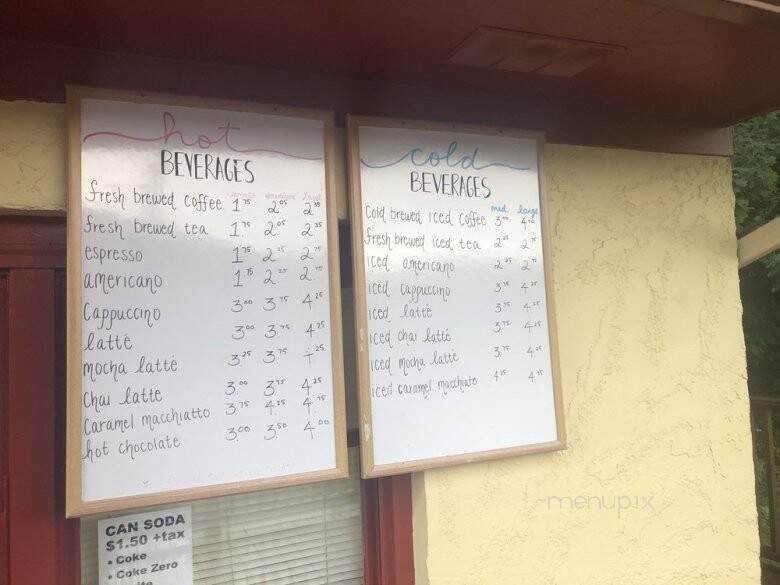 hot
BEVERAGES
small medium large
fresh brewed coffee 1.75 2.05 2.35
fresh brewed tea 1.75 2.05 2.35
espresso 1.75 2.25 2.75
americano 1.75 2.25 2.75
Cappuccino 3.00 3.75 4.25
latté 3.00 3.75 4.25
mocha latté 3.25 3.75 4.25
Chai latte 3.00 3.75 4.25
Caramel macchiatto 3.75 4.25 4.75
hot chocolate 3.00 3.50 4.00
cold
BEVERAGES
med large
Cold brewed iced coffee 3.00 4.00
fresh brewed iced tea 2.25 2.75
iced americano 2.25 2.75
iced cappuccino 3.75 4.25
iced latté 3.75 4.25
iced chai latté 3.75 4.25
iced mocha latté 3.75 4.25
iced caramel macchiato 4.25 4.75
CAN SODA
$1.50 +tax
• Coke
• Coke Zero
menupix